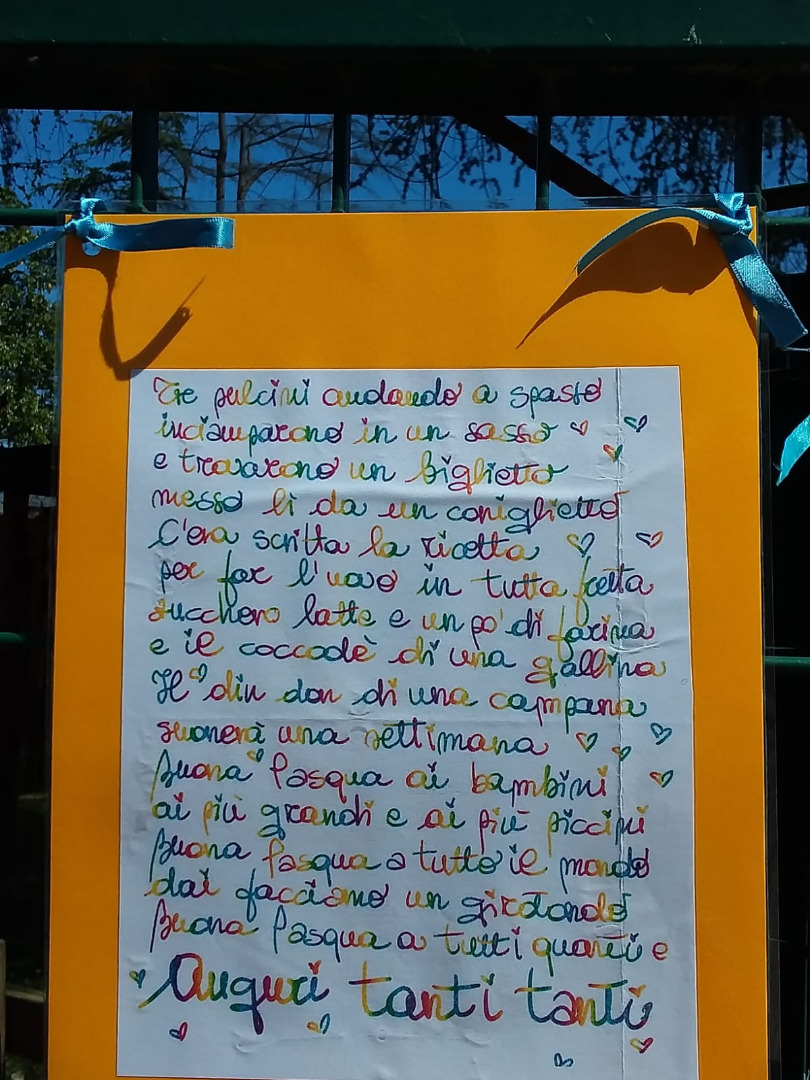 Tre pulcini andando a spasso
inciamparono in un sasso
e trovarono un biglietto
messo lì da un coniglietto
C'era scritta la ricetta
per far l'uovo in tutta fretta
zucchero latte e un po' di farina
e il coccodè di una gallina
Il din don di una campana
suonerà una settimana
Buona Pasqua ai bambini
ai più grandi e ai più piccini
Buona Pasqua a tutto il mondo
dai facciamo un girotondo
Buona Pasqua a tutti quanti e
Auguri tanti tanti